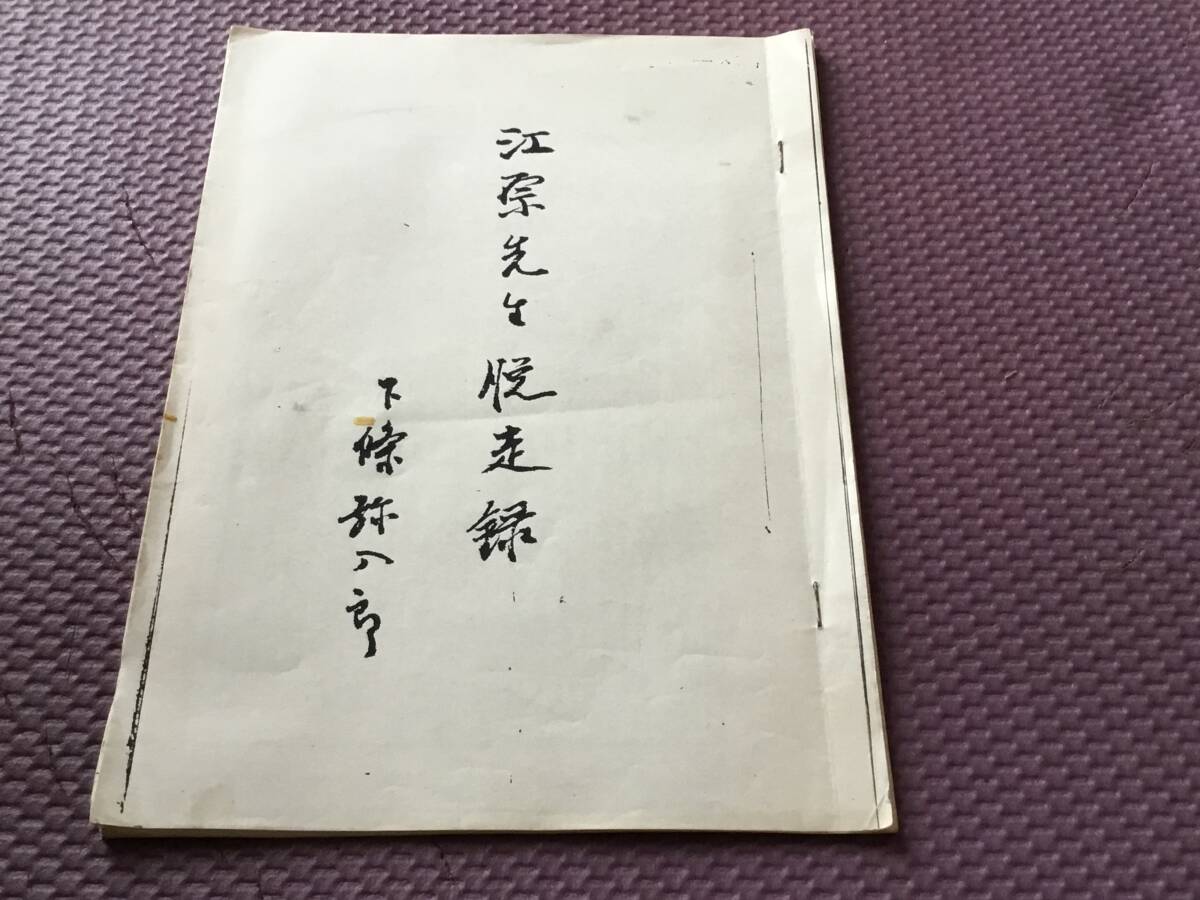 江原先生脱走録
下條弥八郎